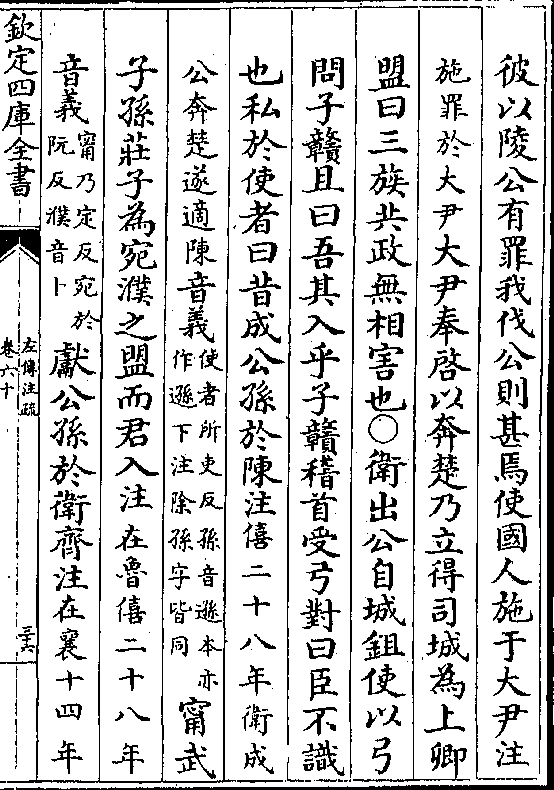 彼以陵公有罪我伐公則甚焉使國人施于大尹注
施罪於大尹大尹奉啓以奔楚乃立得司城為上卿
盟曰三族共政無相害也○衛出公自城鉏使以弓
問子贛且曰吾其入乎子贛稽首受弓對曰臣不識
也私於使者曰昔成公孫於陳注僖二十八年衛成
公奔楚遂適陳音義使者所吏反孫音遜本亦
作遜下注除孫字皆同
甯武
子孫莊子為宛濮之盟而君入注在魯僖二十八年
音義甯乃定反宛於
阮反濮音卜
獻公孫於衛齊注在襄十四年
欽定四庫全書
左傳注疏
卷六十
三六